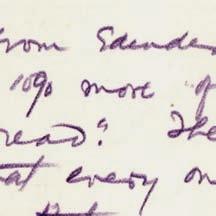 from Edender
10% more of
read". The
at every on